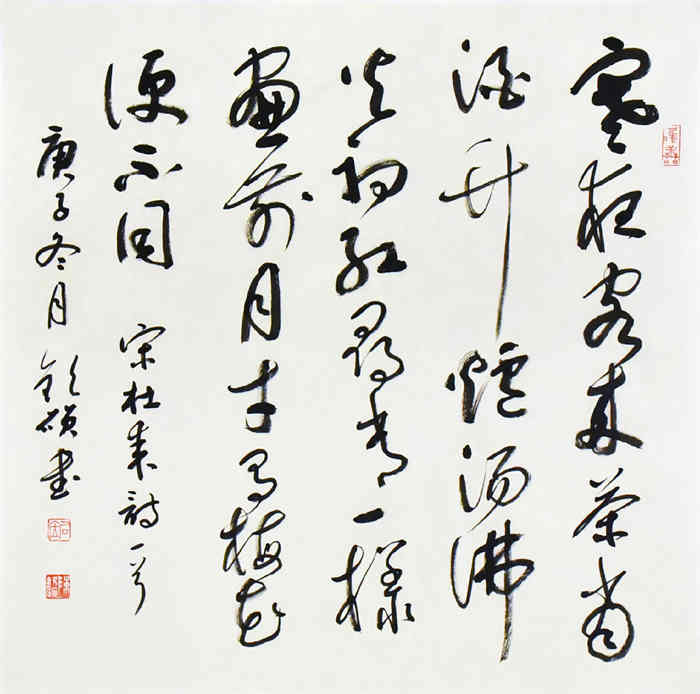 寒夜客来茶当
酒竹爐汤沸
火初红尋常一樣
窗前月才有梅花
便不同 宋杜耒詩一首
庚子冬月 欽碩書